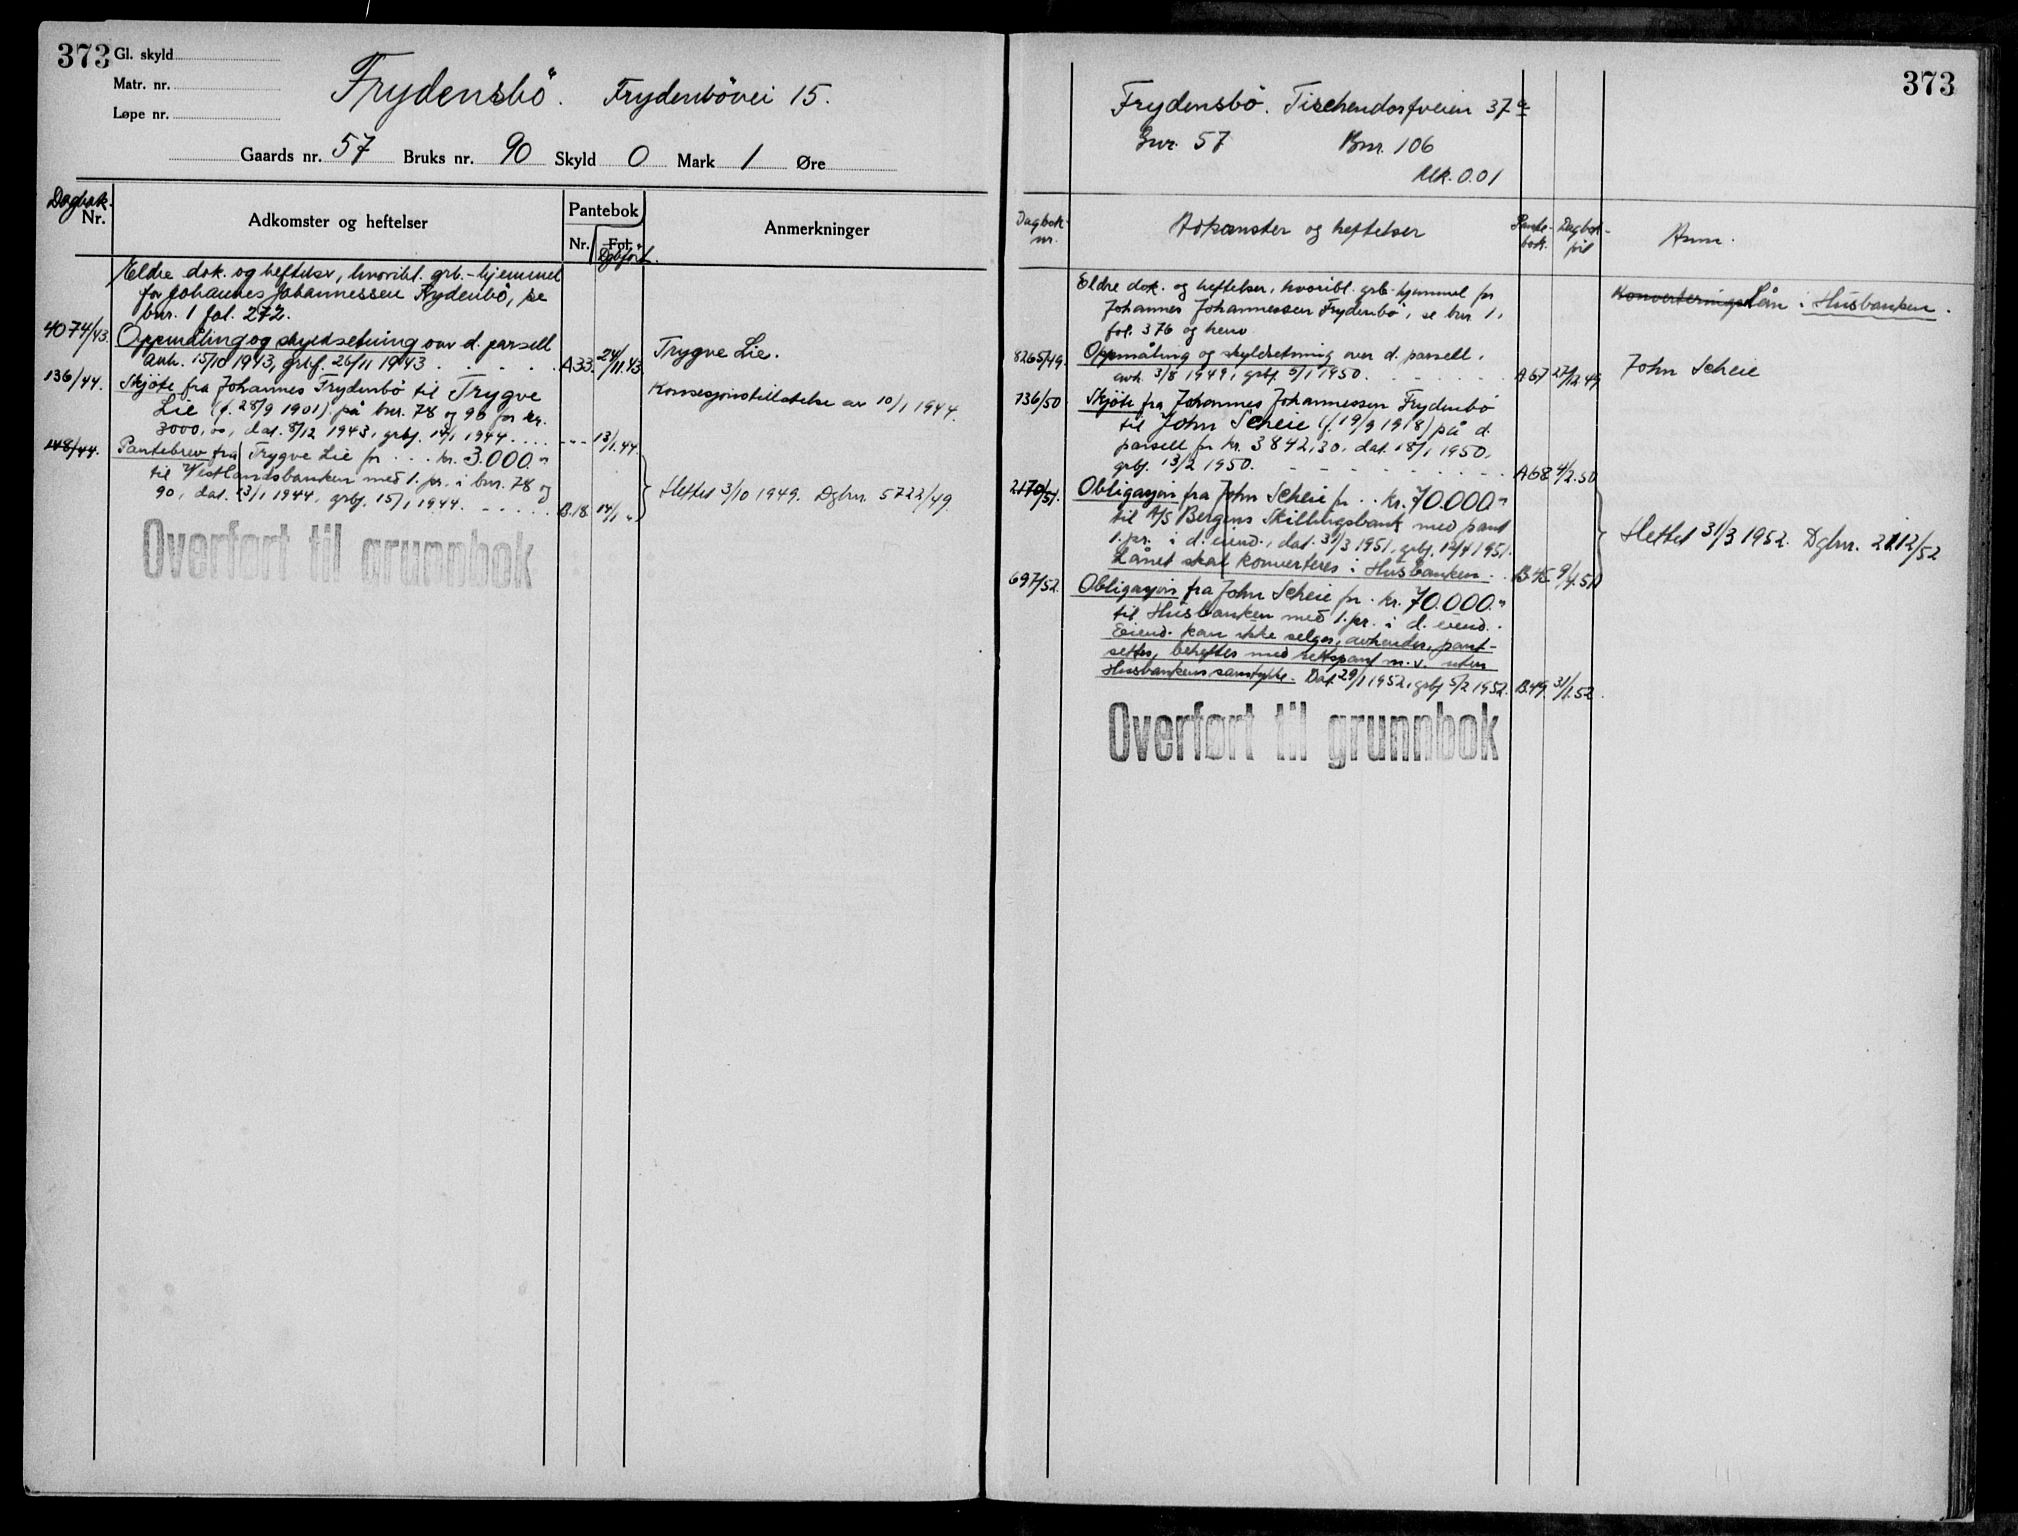 373 Gl. skyld
Matr. nr.
Løpe nr.
Frydensbö. Frydenbövei 15.
Gaards nr. 57 Bruks nr. 90 Skyld 0 Mark 1 Øre
Dagbok. Nr.
Adkomster og heftelser
Pantebok
Nr. Fol. Dgbført.
Anmerkninger
Eldre dok. og heftelser, hvoribl. grb.-hjemmel
for Johannes Johannessen Frydenbö, se
bnr. 1 fol. 272.
4074/43. Oppmåling og skyldsetning over d. parsell
avh. 15/10 1943, grbf. 26/11 1943 . . . . . A33. 24/11.43 Trygve Lie.
136/44. Skjöte fra Johannes Frydenbö til Trygve
Lie (f. 28/9 1901) på bnr. 78 og 90 for kr. Konsesjonstillatelse av 10/1 1944.
3000,00, dat. 8/12 1943, grbf. 14/1 1944 . . . . --- 13/1.44
148/44. Pantebrev fra Trygve Lie for . . . kr. 3.000.-
til Vestlandsbanken med 1. pr. i bnr. 78 og
90, dat. 13/1 1944, grbf. 15/1 1944. . . . . . B.18. 14/1 " Slettet 3/10 1949. Dgbnr. 5722/49
Overført til grunnbok
373
Frydensbö. Tischendorfveien 37a
Gnr. 57 Bnr. 106
Mk. 0.01
Dagbok-nr.
Adkomster og heftelser
Pante-bok.
Dagbok-
Anm.
Eldre dok. og heftelser, hvoribl. grb. hjemmel for
Johannes Johannessen Frydenbö, se bnr 1,
fol. 376 og henv.
Konverteringslån i Husbanken.
8265/49. Oppmåling og skyldsetning over d. parsell,
avh. 3/8 1949, grbf. 5/1 1950. . . . . . . A67 27/12.49 John Scheie
736/50 Skjöte fra Johannes Johannessen Frydenbö
til John Scheie (f. 19/9 1918) på d.
parsell for kr. 3842,30, dat. 18/1 1950,
grbf. 13/2 1950. . . . . . . . A68 4/2.50
2170/51. Obligasjon fra John Scheie for . . kr. 70.000.-
til A/S Bergens Skillingsbank med pant
1. pr. i d. eiend., dat. 31/3 1951, grbf. 12/4 1951.
Lånet skal konverteres i Husbanken. . B.45 9/4.51 Slettet 31/3 1952. Dgbnr. 2112/52
697/52. Obligasjon fra John Scheie for . kr. 70.000.-
til Husbanken med 1. pr. i d. eiend. .
Eiend. kan ikke selges, avhendes, pant-
settes, beheftes med rettspant m.v. uten
Husbankens samtykke. Dat. 29/1 1952, grbf 5/2 1952. B.49. 31/1.52.
Overført til grunnbok